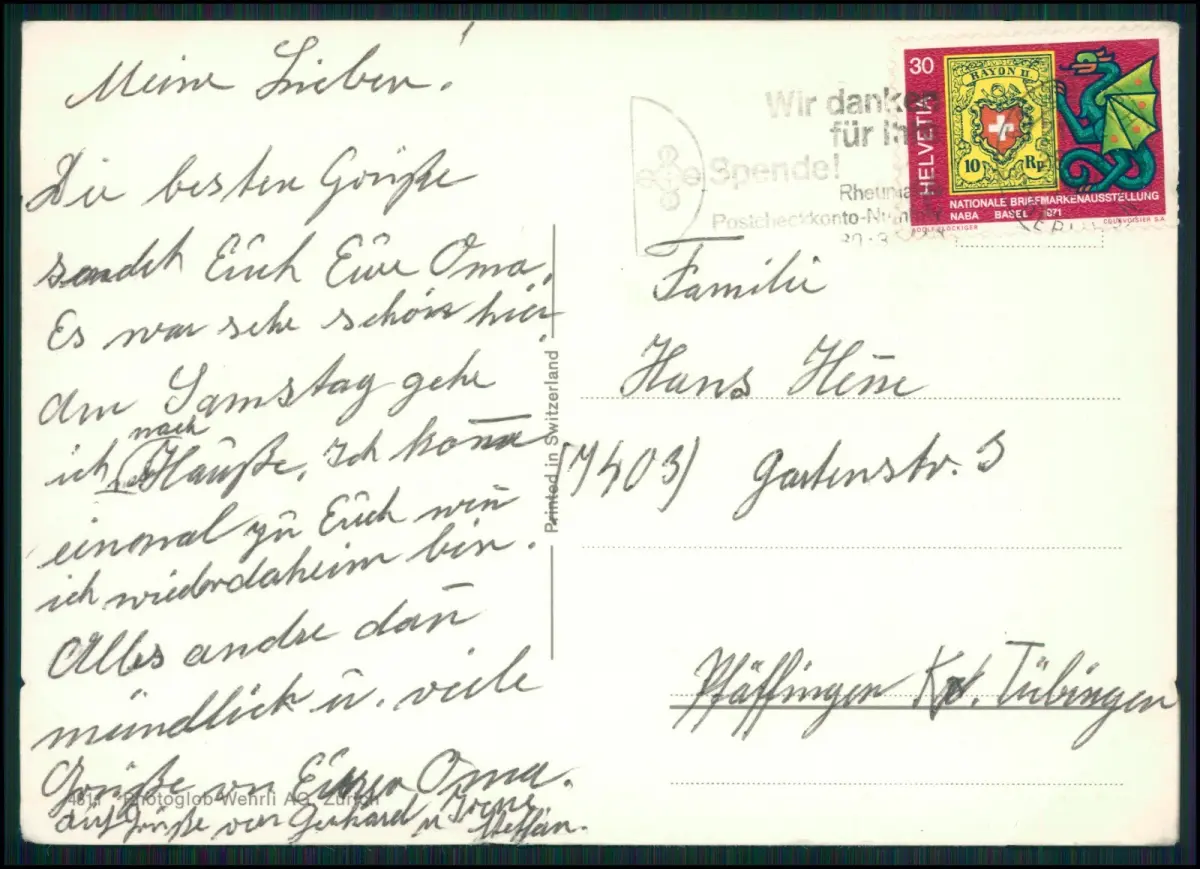 Meine Lieben!
Die besten Grüße
sendet Euch Eure Oma.
Es war sehr schön hier
am Samstag gehe
ich nach Hauße. Ich kom̄e
einmal zu Euch wen̄
ich wiederdaheim bin.
Alles andre dan̄
mündlich u. viele
Grüße von Eurer Oma.
auch Grüße von Gerhard u Irene
Steffan.
4811 Photoglob-Wehrli AG, Zürich
Printed in Switzerland
Wir danken
für Ihre
Spende!
Rheuma
Postcheckkonto-Nummer
30
HELVETIA
RAYON II
10 Rp
NATIONALE BRIEFMARKENAUSSTELLUNG
NABA BASEL 1971
ADOLF FLÜCKIGER
COURVOISIER S.A.
Familie
Hans
(7403) Gartenstr. 3
Pfäffingen Kr. Tübingen